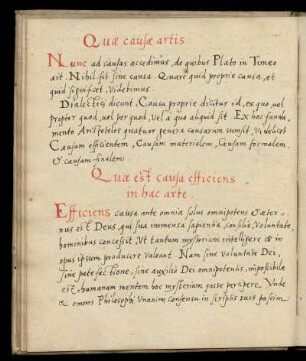 Quæ causæ artis
Nunc ad causas accedimus, de quibus Plato in Timeo
ait. Nihil fit sine causa. Quare quid proprie causa, et
quid significet, Videbimus.
Dialectis dicunt. Causa proprie dicitur id, ex quo, vel
propter quod, vel per quod, Vel a quo aliquid sit. Ex hoc funda
mento Aristoteles quatuor genera causarum sumsit, Videlicet
Causam efficientem, Causam materialem, Causam formalem
& causam finalem.
Quæ est causa efficiens
in hac arte
Efficiens causa ante omnia solus omnipotens & æter
nus est Deus, qui sua immensa sapientia, consilio, Voluntate
hominibus concessit, Vt tantum mysterium intelligere & in
opus ipsum producere valeant. Nam sine voluntate Dei,
sine patefactione, sine auxilio Dei omnipotentis, impossibile
est, humanam mentem hoc mysterium posse percipere. Vnde
& omnes Philosophi Vnanimi consensu in scriptis suis passim